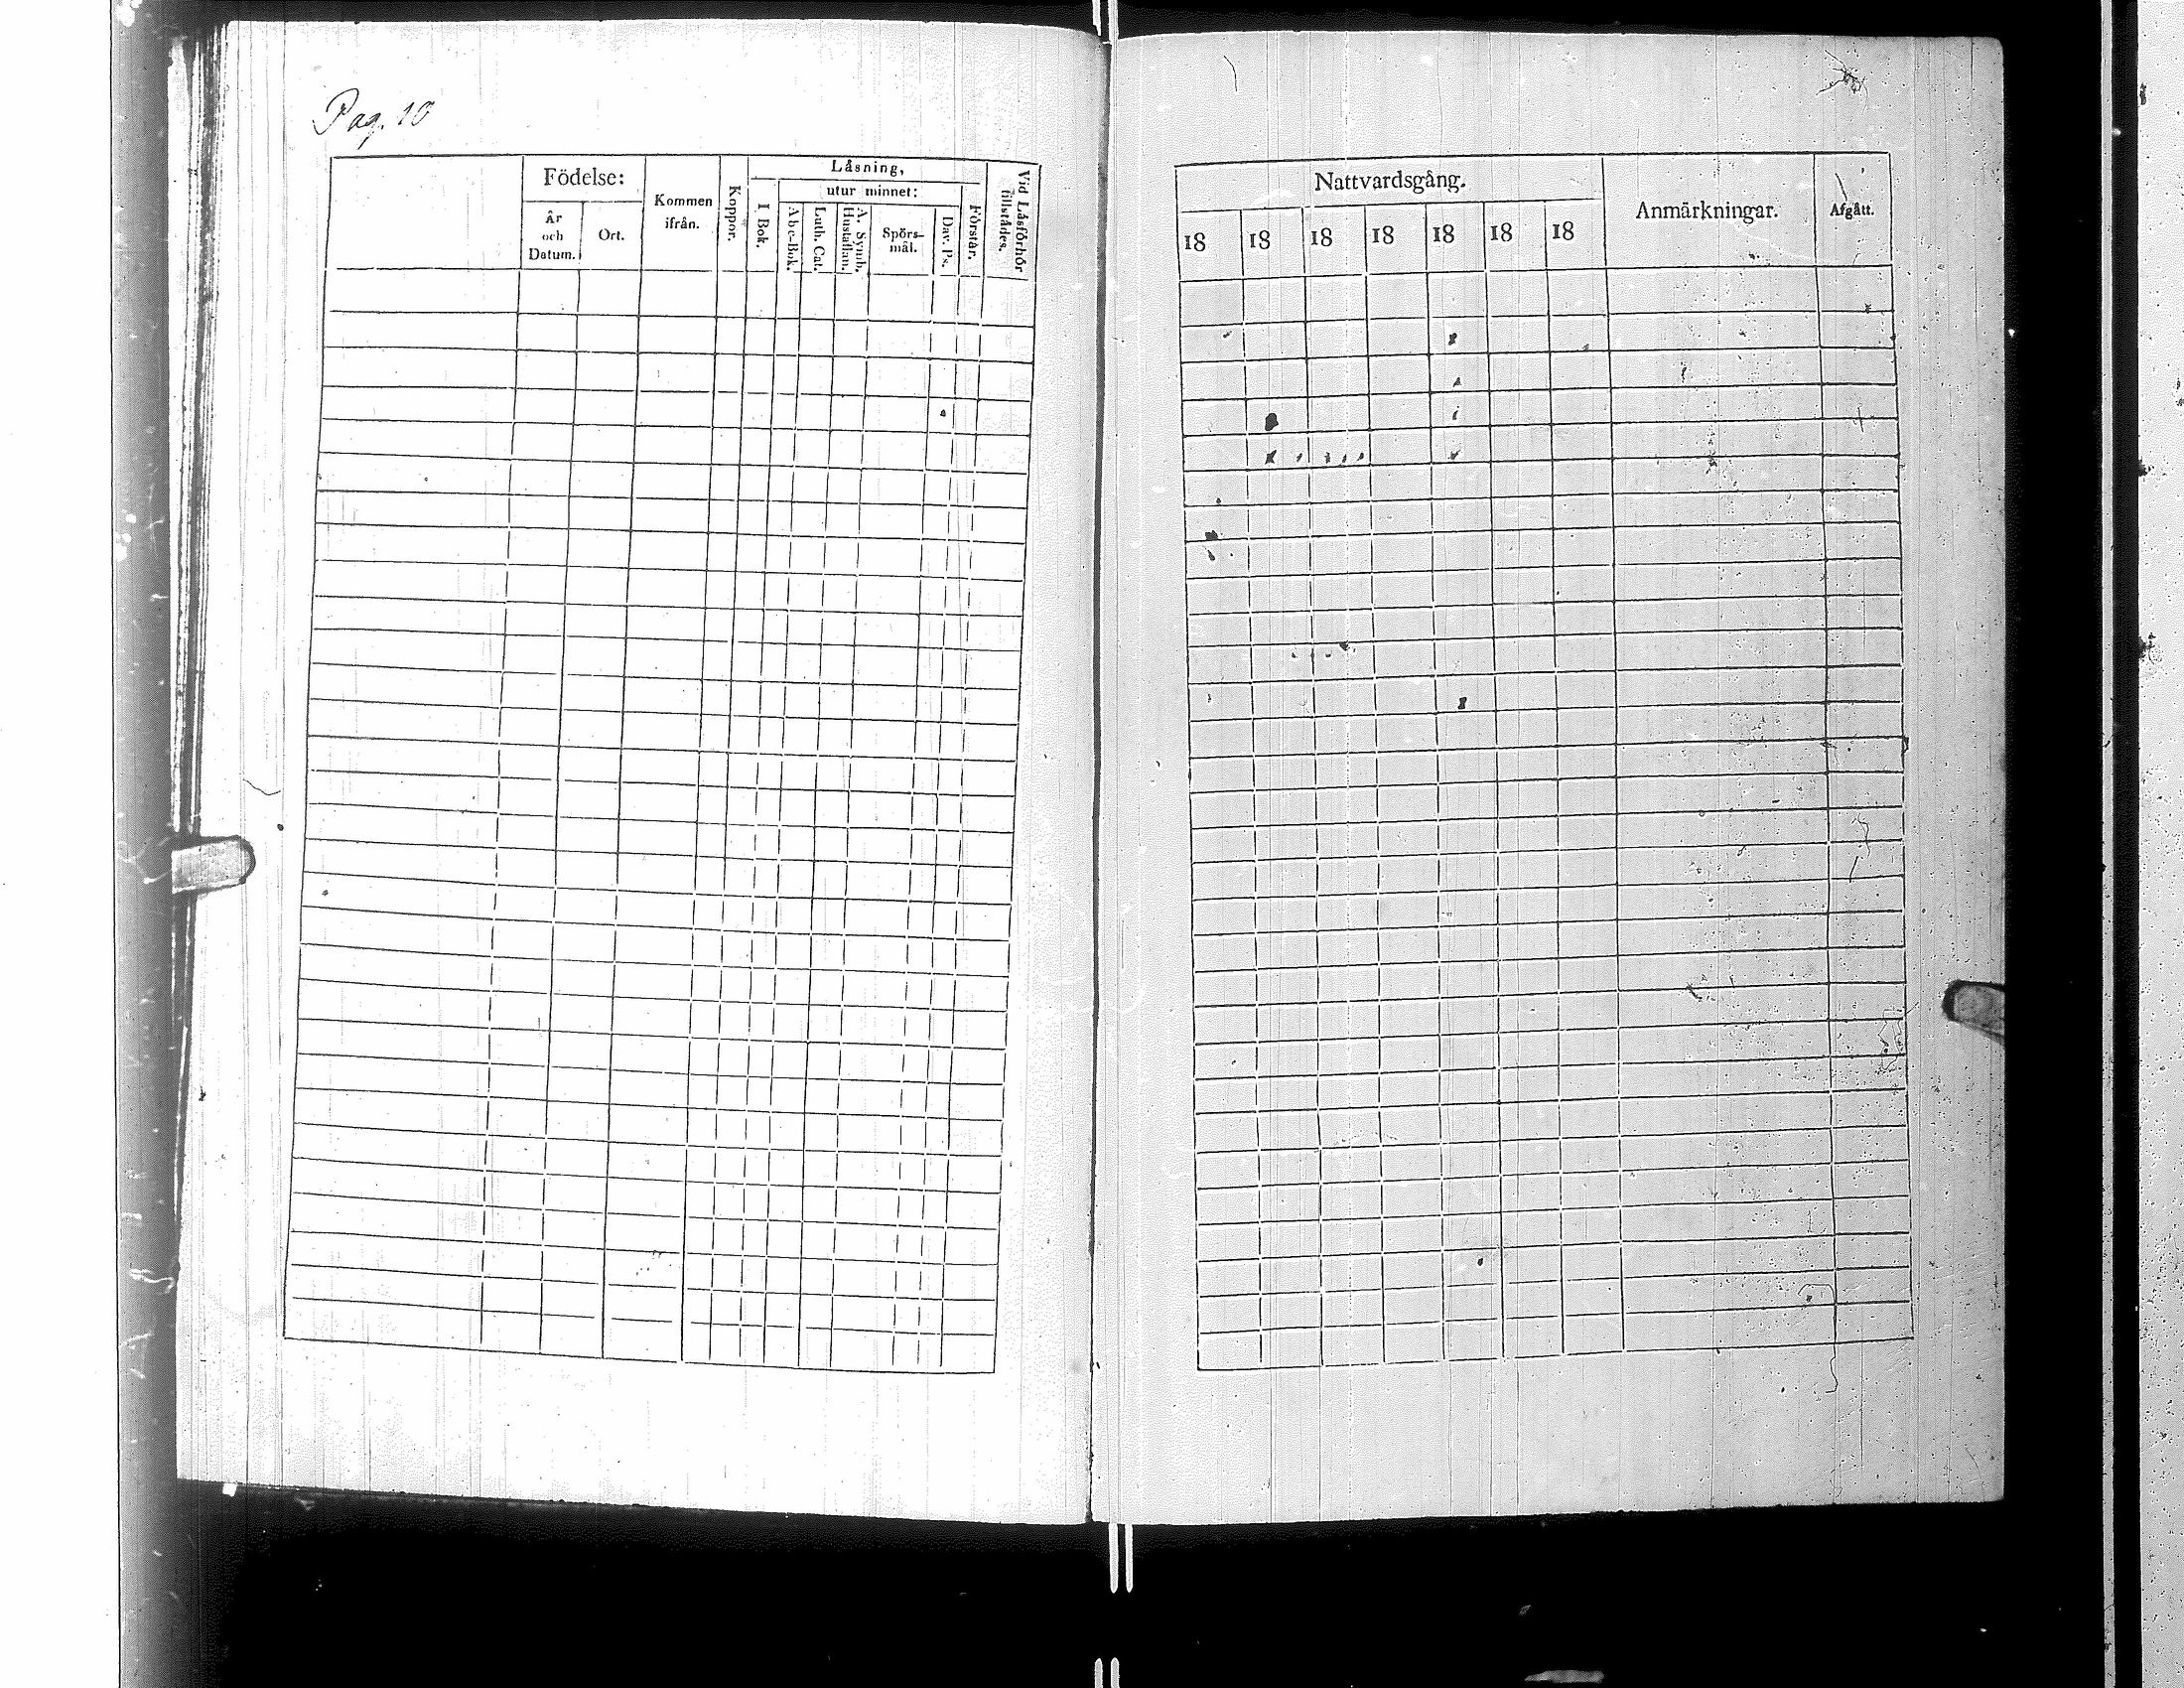 Pag. 10
Födelse:
År
och
Datum.
Ort.
Kommen
ifrån.
Koppor.
Låsning,
I Bok.
utur minnet:
Abc-Bok.
Luth. Cat.
A. Symb.
Hustaflan.
Spörs-
mål.
Dav. Ps.
Förstår.
Vid Låsförhör
tillstådes.
Nattvardsgång.
18 18 18 18 18 18 18
Anmärkningar.
Afgått.